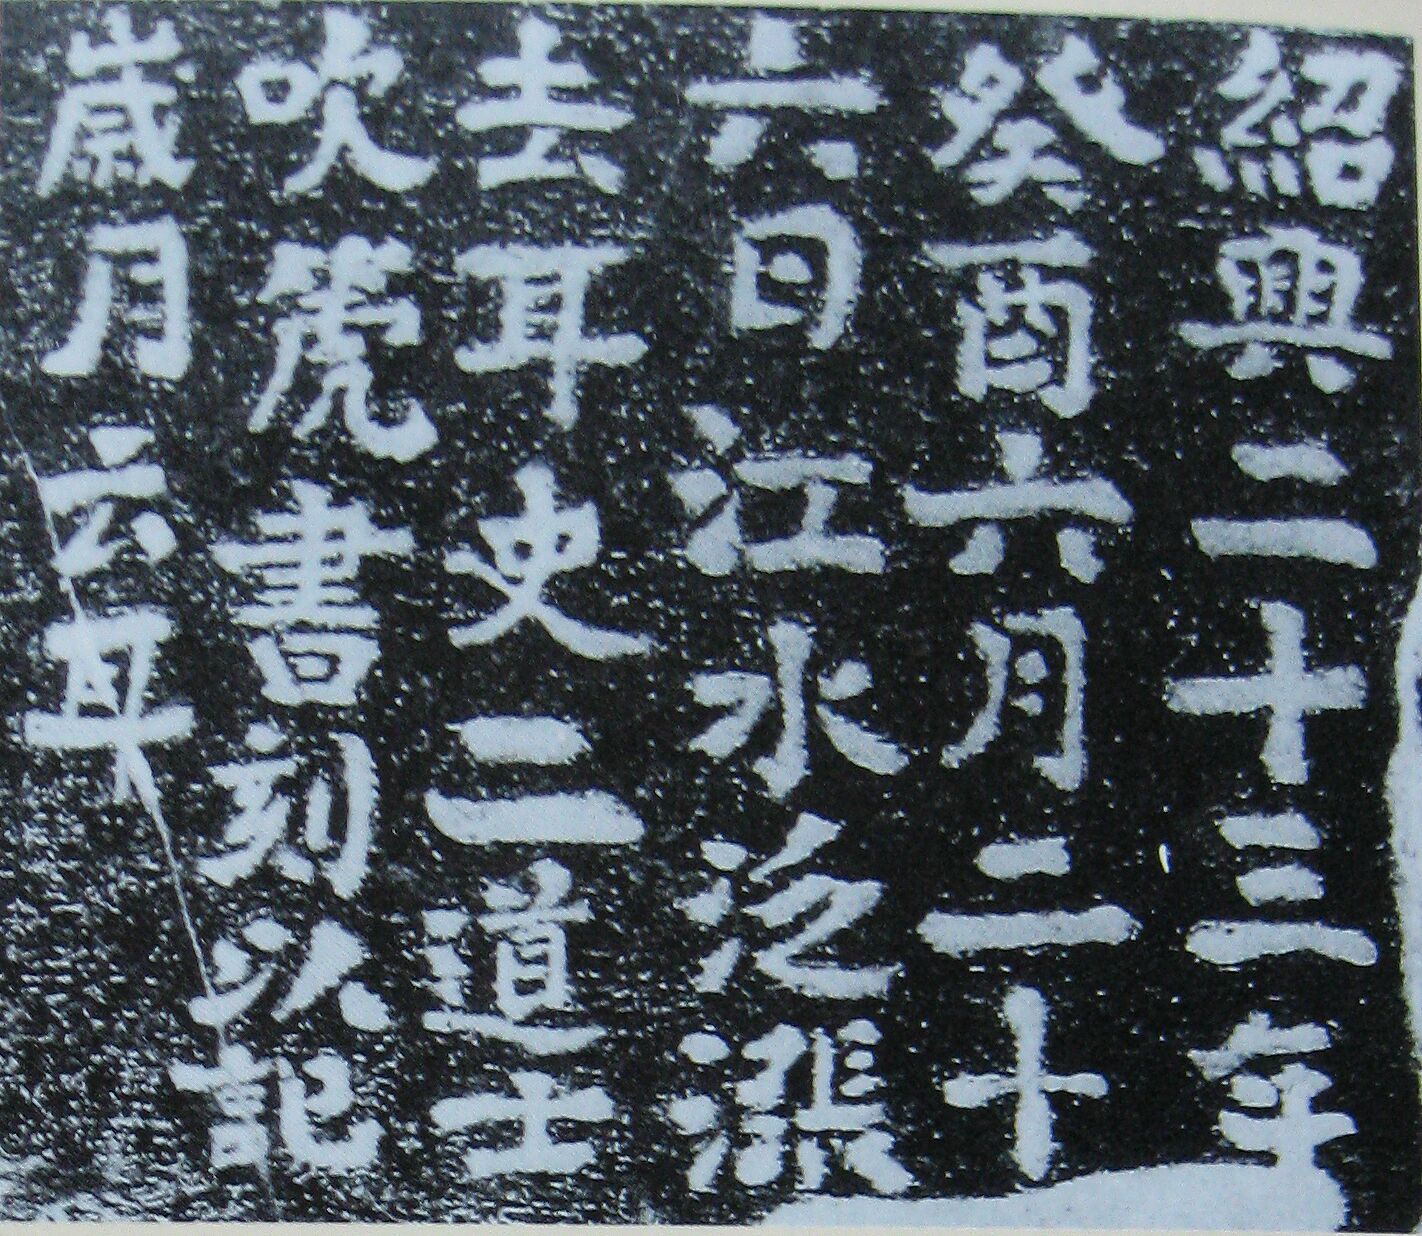 紹興二十三年
癸酉六月二十
六日江水泛漲
去耳史二道士
吹箎書刻以記
歲月云耳